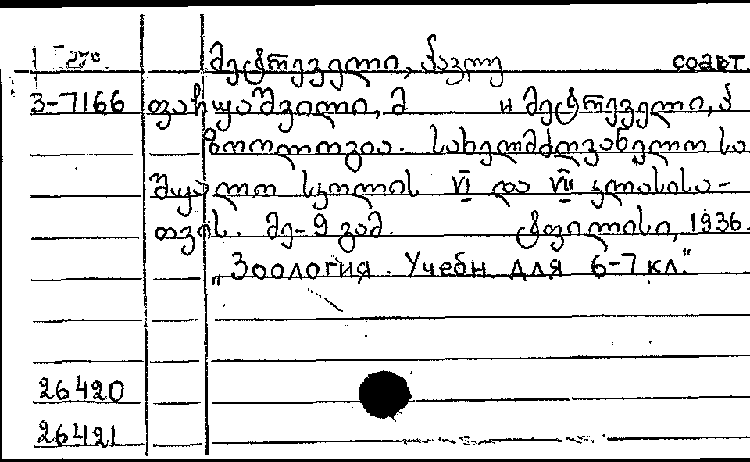 მეტრეველი, პავლე соавт.
3-7166 ფარჯაშვილი, მ и მეტრეველი, პ
ზოოლოგია. სახელმძღვანელო სა
შუალო სკოლის VI და VII კლასისა-
თვის. მე-9 გამ. ტფილისი, 1936.
„Зоология. Учебн. для 6-7 кл."
26420
26421